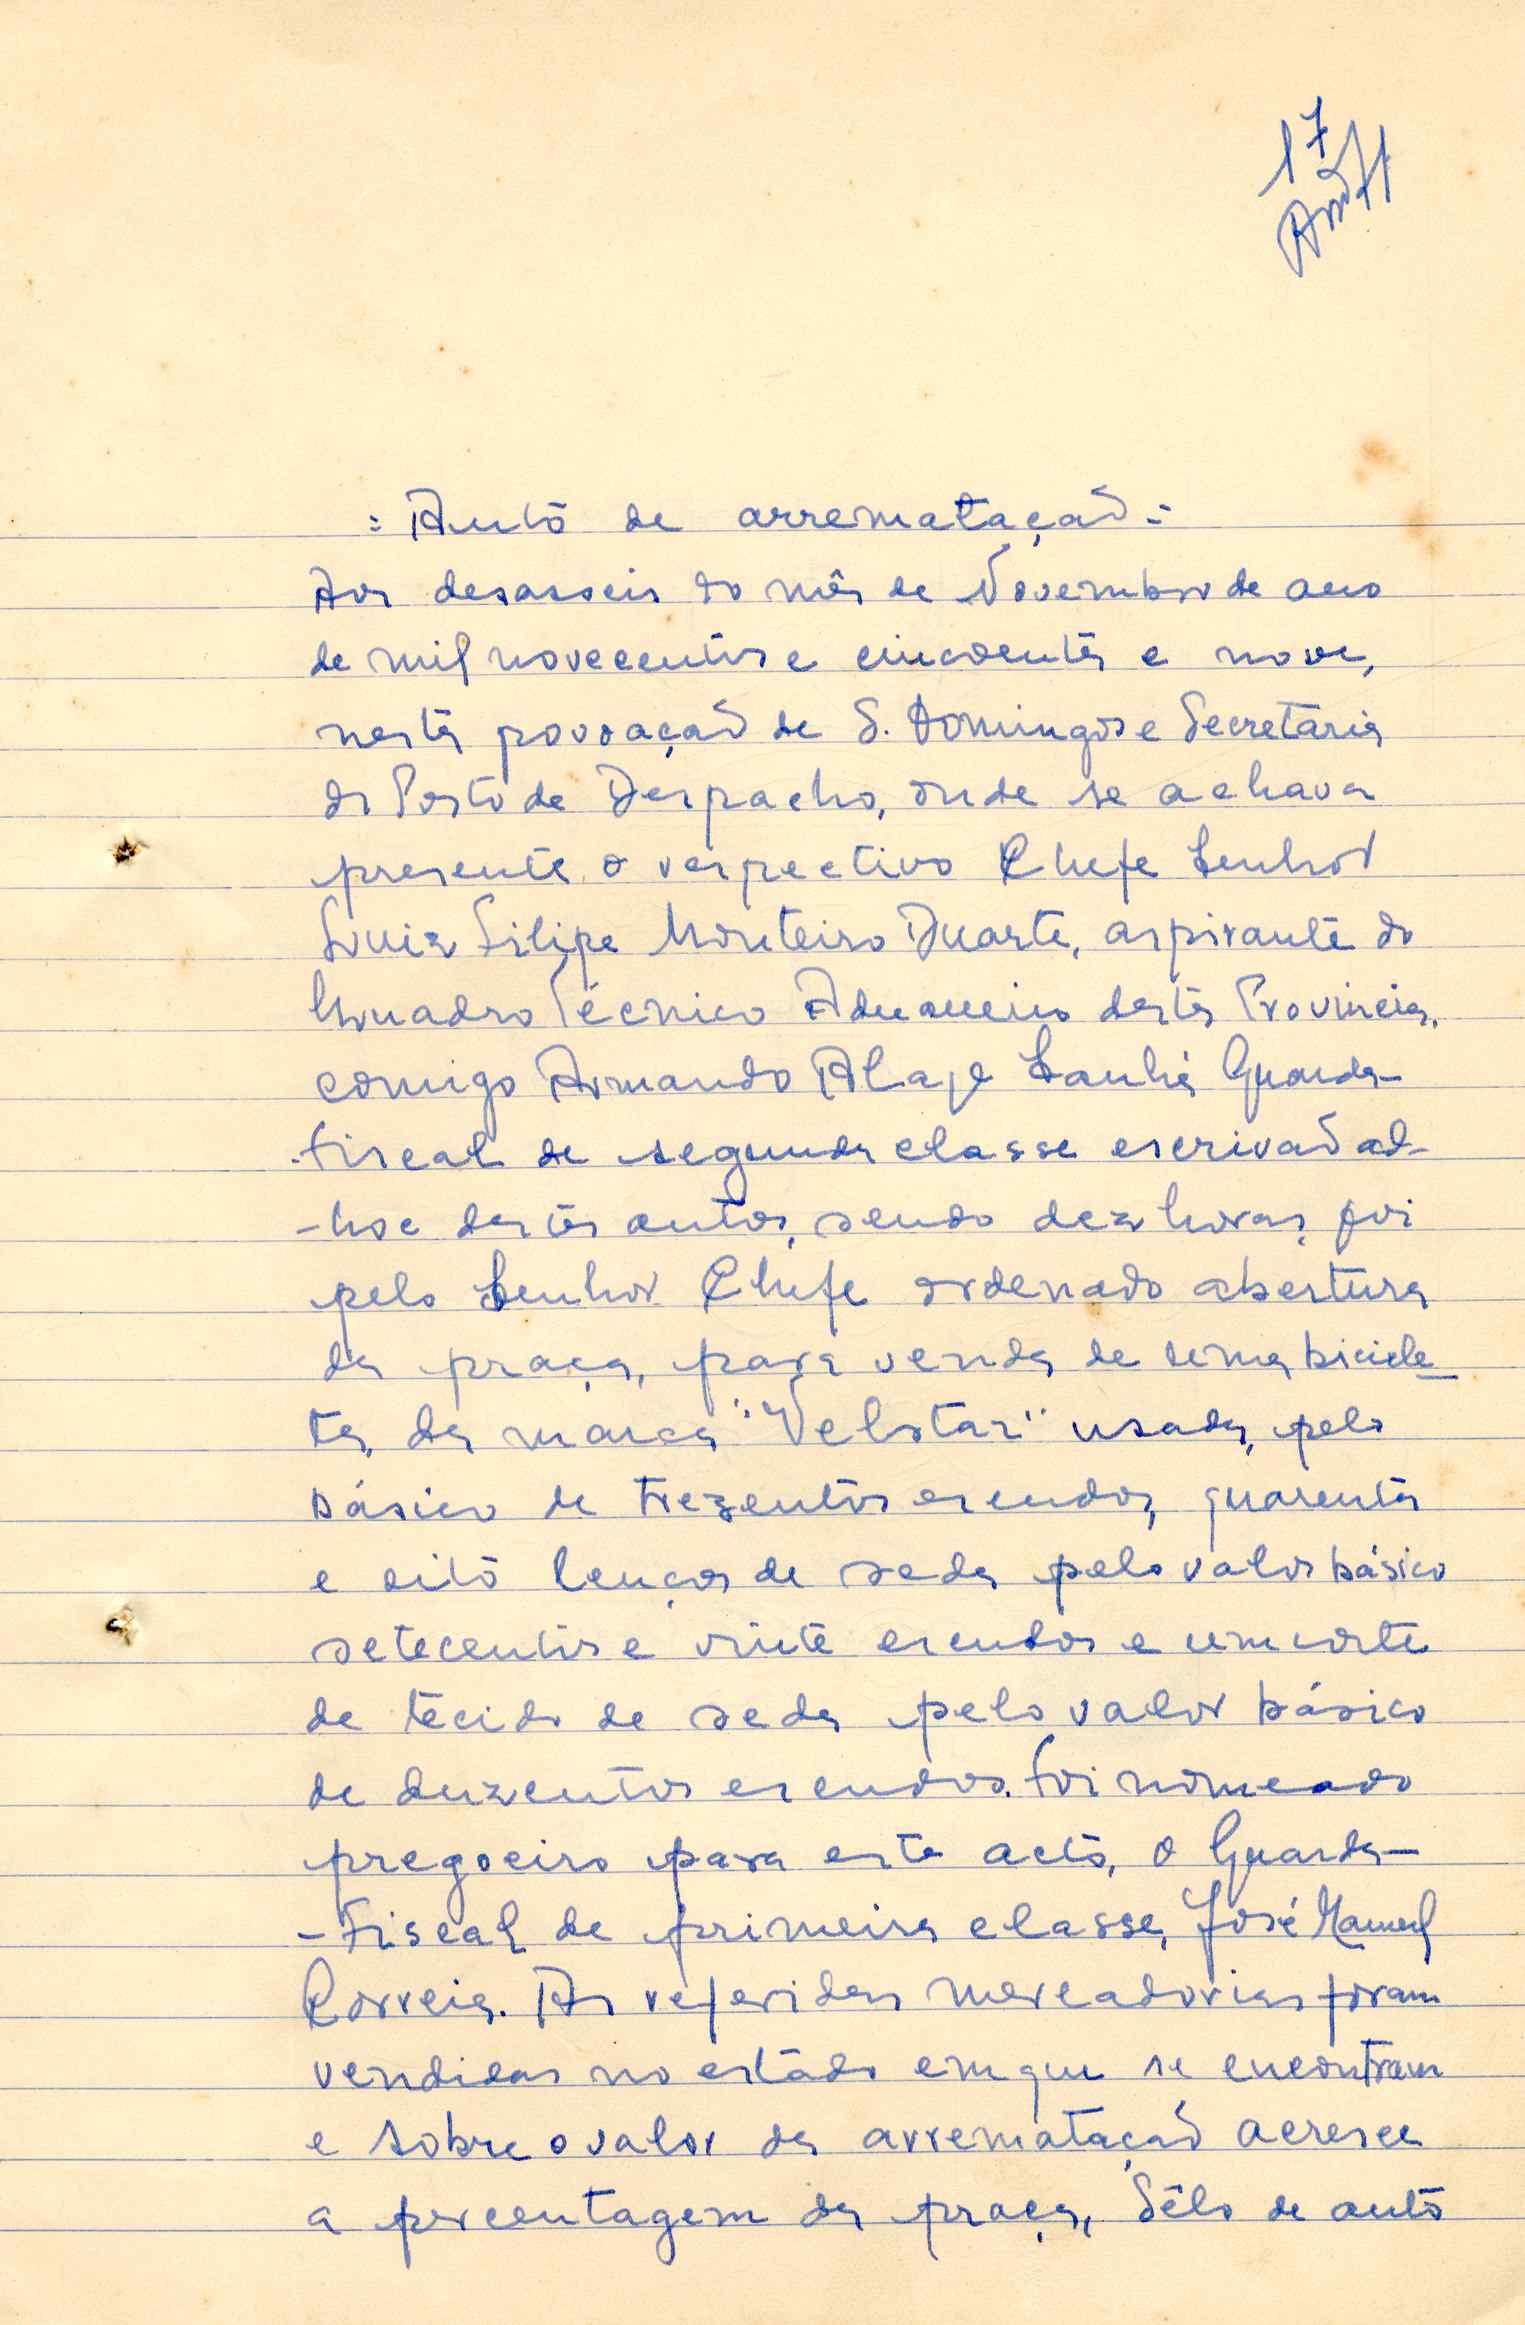 17
: Auto de arrematação :
Aos desasseis do mês de Novembro de ano
de mil novecentos e cincoenta e nove,
nesta povoação de S. Domingos e Secretaria
do Posto de Despacho, onde se achava
presente o respectivo Chefe Senhor
Luiz Filipe Monteiro Duarte, aspirante do
Quadro Técnico Aduaneiro desta Provincia,
comigo Armando Alage Sanhá Guarda-
fiscal de segunda classe escrivão ad-
-hoc destes autos, sendo dez horas, foi
pelo Senhor Chefe ordenado abertura
da praça, para venda de uma bicicle
ta, da marca "Velstar" usada, pelo
básico de trezentos escudos, quarenta
e oito lenços de seda pelo valor básico
setecentos e vinte escudos e um corte
de tecido de seda pelo valor básico
de duzentos escudos. Foi nomeado
pregoeiro para este acto, o Guarda-
-Fiscal de primeira classe, José Manuel
Correia. As referidas mercadorias foram
vendidas no estado em que se encontram
e sobre o valor da arrematação acresce
a porcentagem da praça, Sêlo de auto